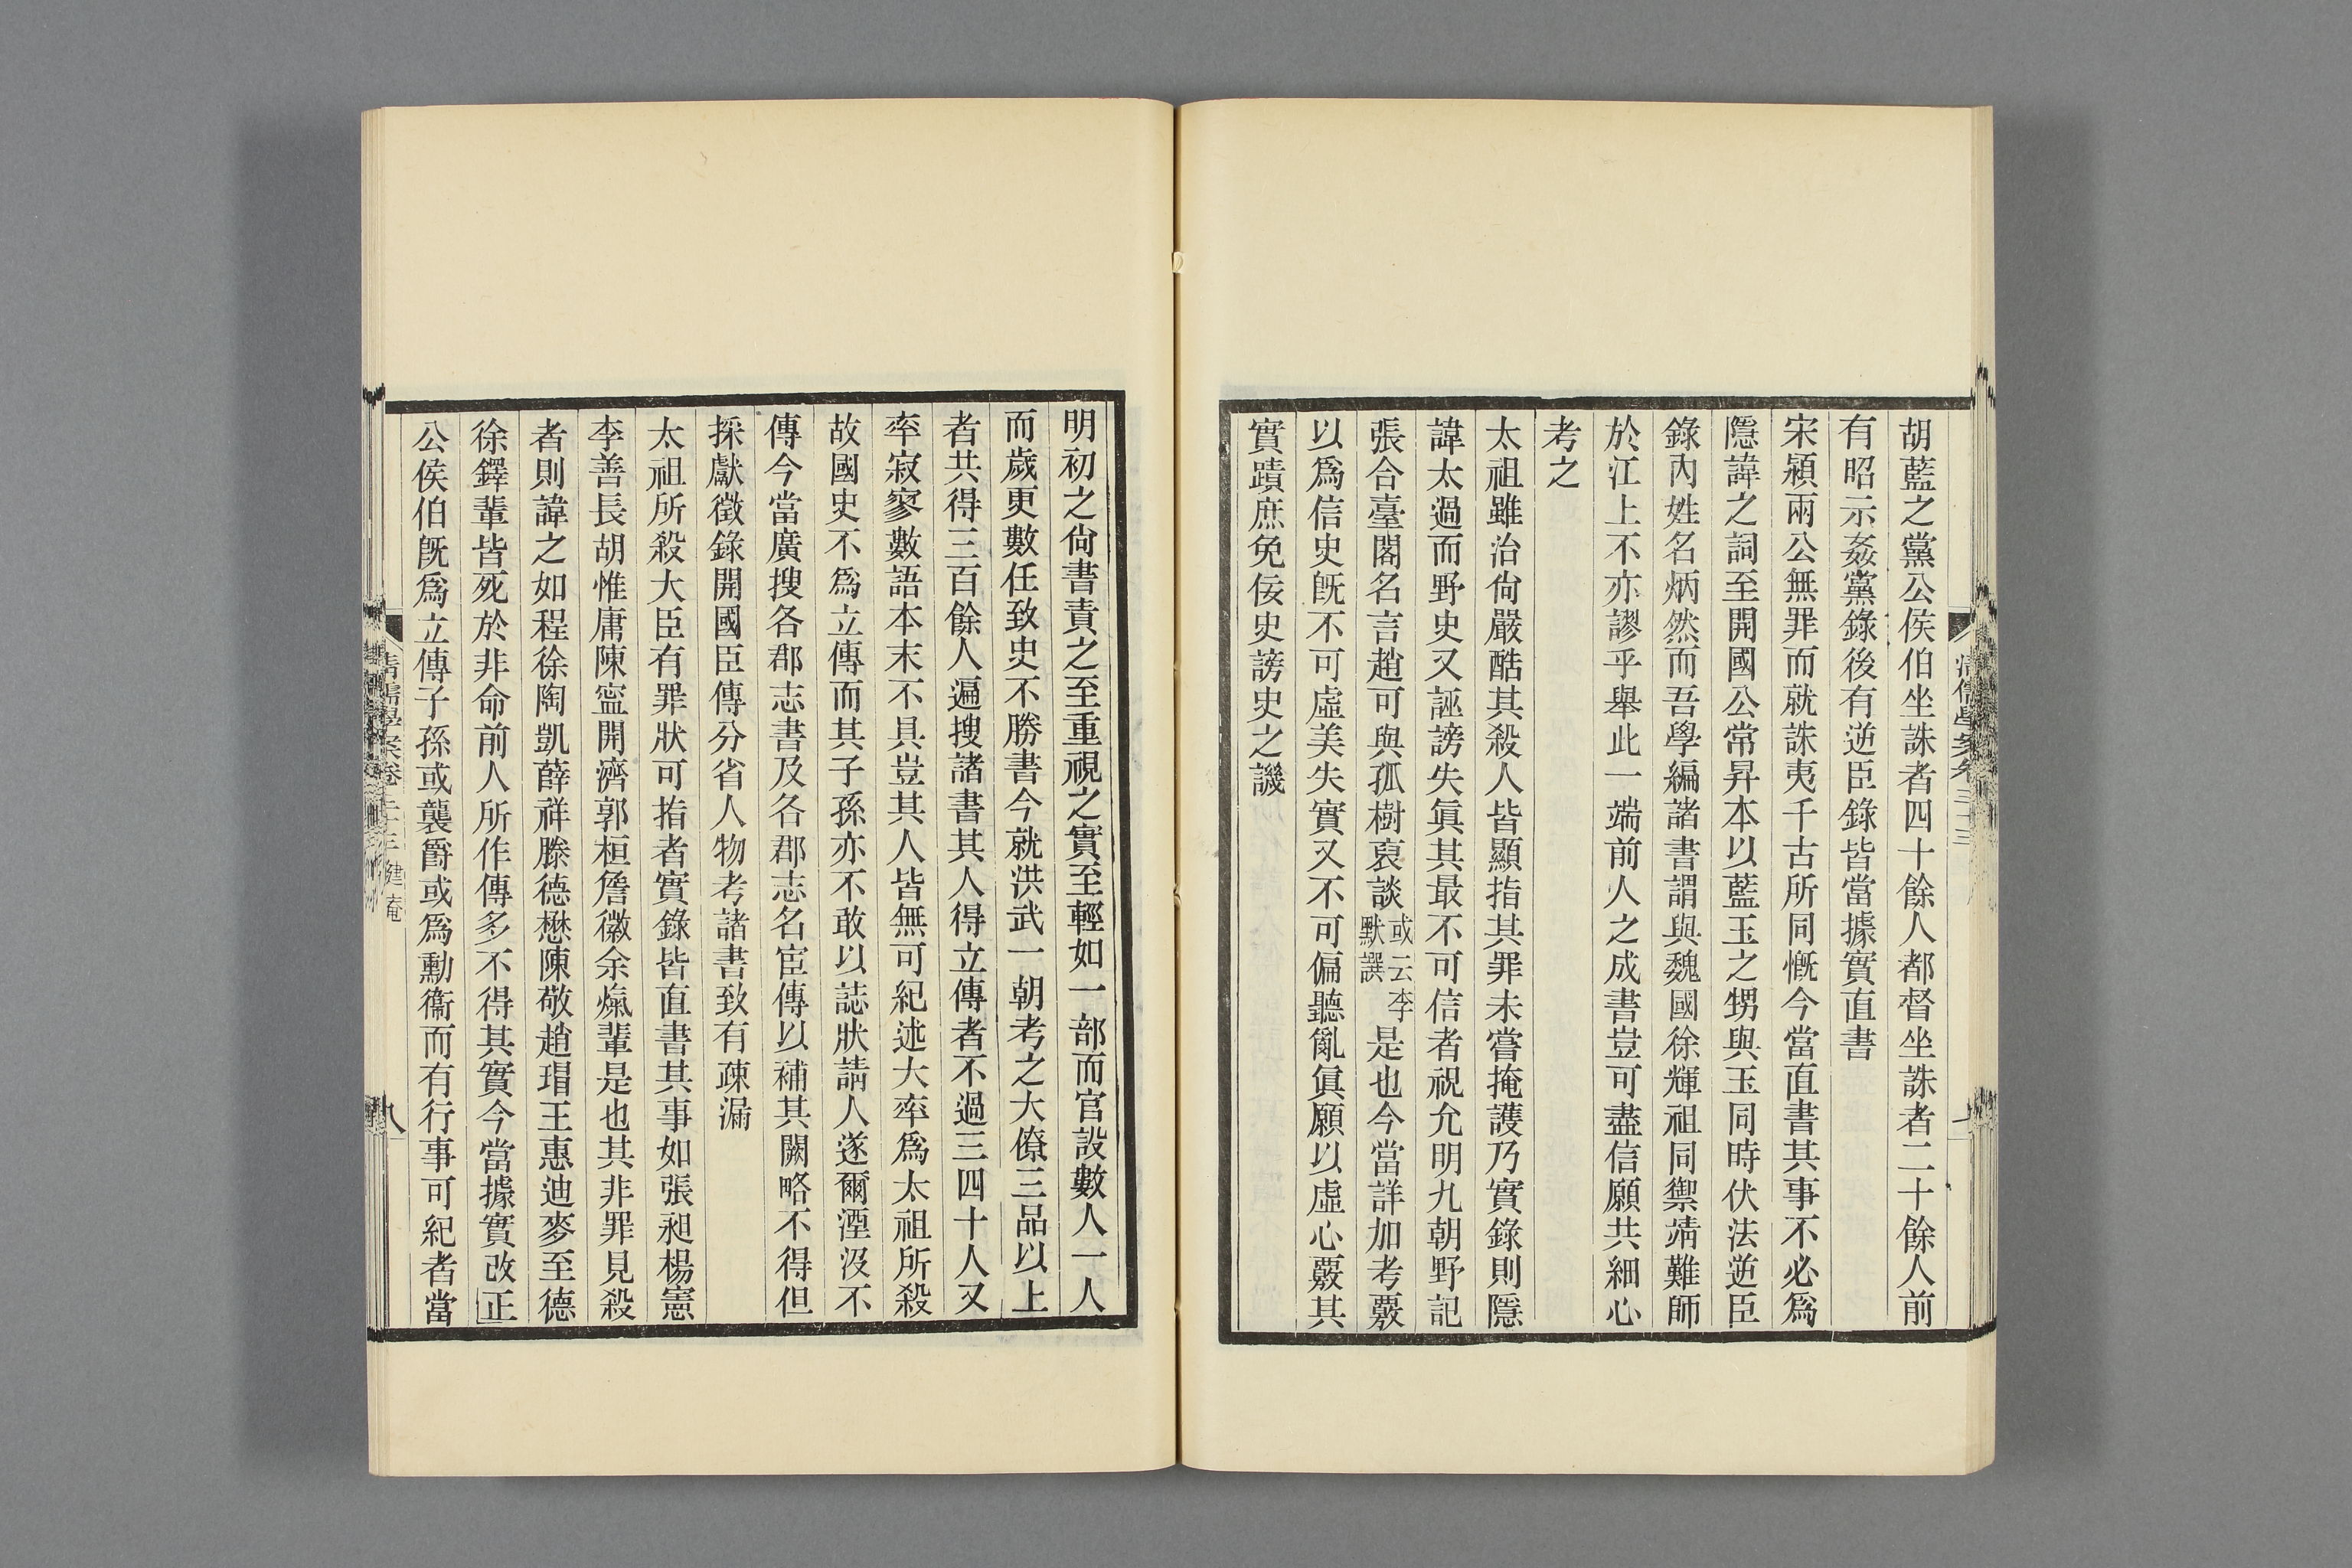 胡藍之黨公侯伯坐誅者四十餘人都督坐誅者二十餘人前
有昭示姦黨錄後有逆臣錄皆當據實直書
宋潁兩公無罪而就誅夷千古所同慨今當直書其事不必爲
隱諱之詞至開國公常昇本以藍玉之甥與玉同時伏法逆臣
錄內姓名炳然而吾學編諸書謂與魏國徐輝祖同禦靖難師
於江上不亦謬乎舉此一端前人之成書豈可盡信願共細心
考之
太祖雖治尙嚴酷其殺人皆顯指其罪未嘗掩護乃實錄則隱
諱太過而野史又誣謗失眞其最不可信者祝允明九朝野記
張合臺閣名言趙可與孤樹裒談或云李默譔是也今當詳加考覈
以爲信史旣不可虛美失實又不可偏聽亂眞願以虛心覈其
實蹟庶免佞史謗史之譏
清儒學案卷三十三
明初之尙書責之至重視之實至輕如一部而官設數人一人
而歲更數任致史不勝書今就洪武一朝考之大僚三品以上
者共得三百餘人遍搜諸書其人得立傳者不過三四十人又
率寂寥數語本末不具豈其人皆無可紀述大率爲太祖所殺
故國史不爲立傳而其子孫亦不敢以誌狀請人遂爾湮沒不
傳今當廣搜各郡志書及各郡志名宦傳以補其闕略不得但
採獻徵錄開國臣傳分省人物考諸書致有疎漏
太祖所殺大臣有罪狀可指者實錄皆直書其事如張昶楊憲
李善長胡惟庸陳寧開濟郭桓詹徽余熂輩是也其非罪見殺
者則諱之如程徐陶凱薛祥滕德懋陳敬趙瑁王惠迪麥至德
徐鐸輩皆死於非命前人所作傳多不得其實今當據實改正
公侯伯旣爲立傳子孫或襲爵或爲勳衞而有行事可紀者當
清儒學案卷三十三 健菴
八